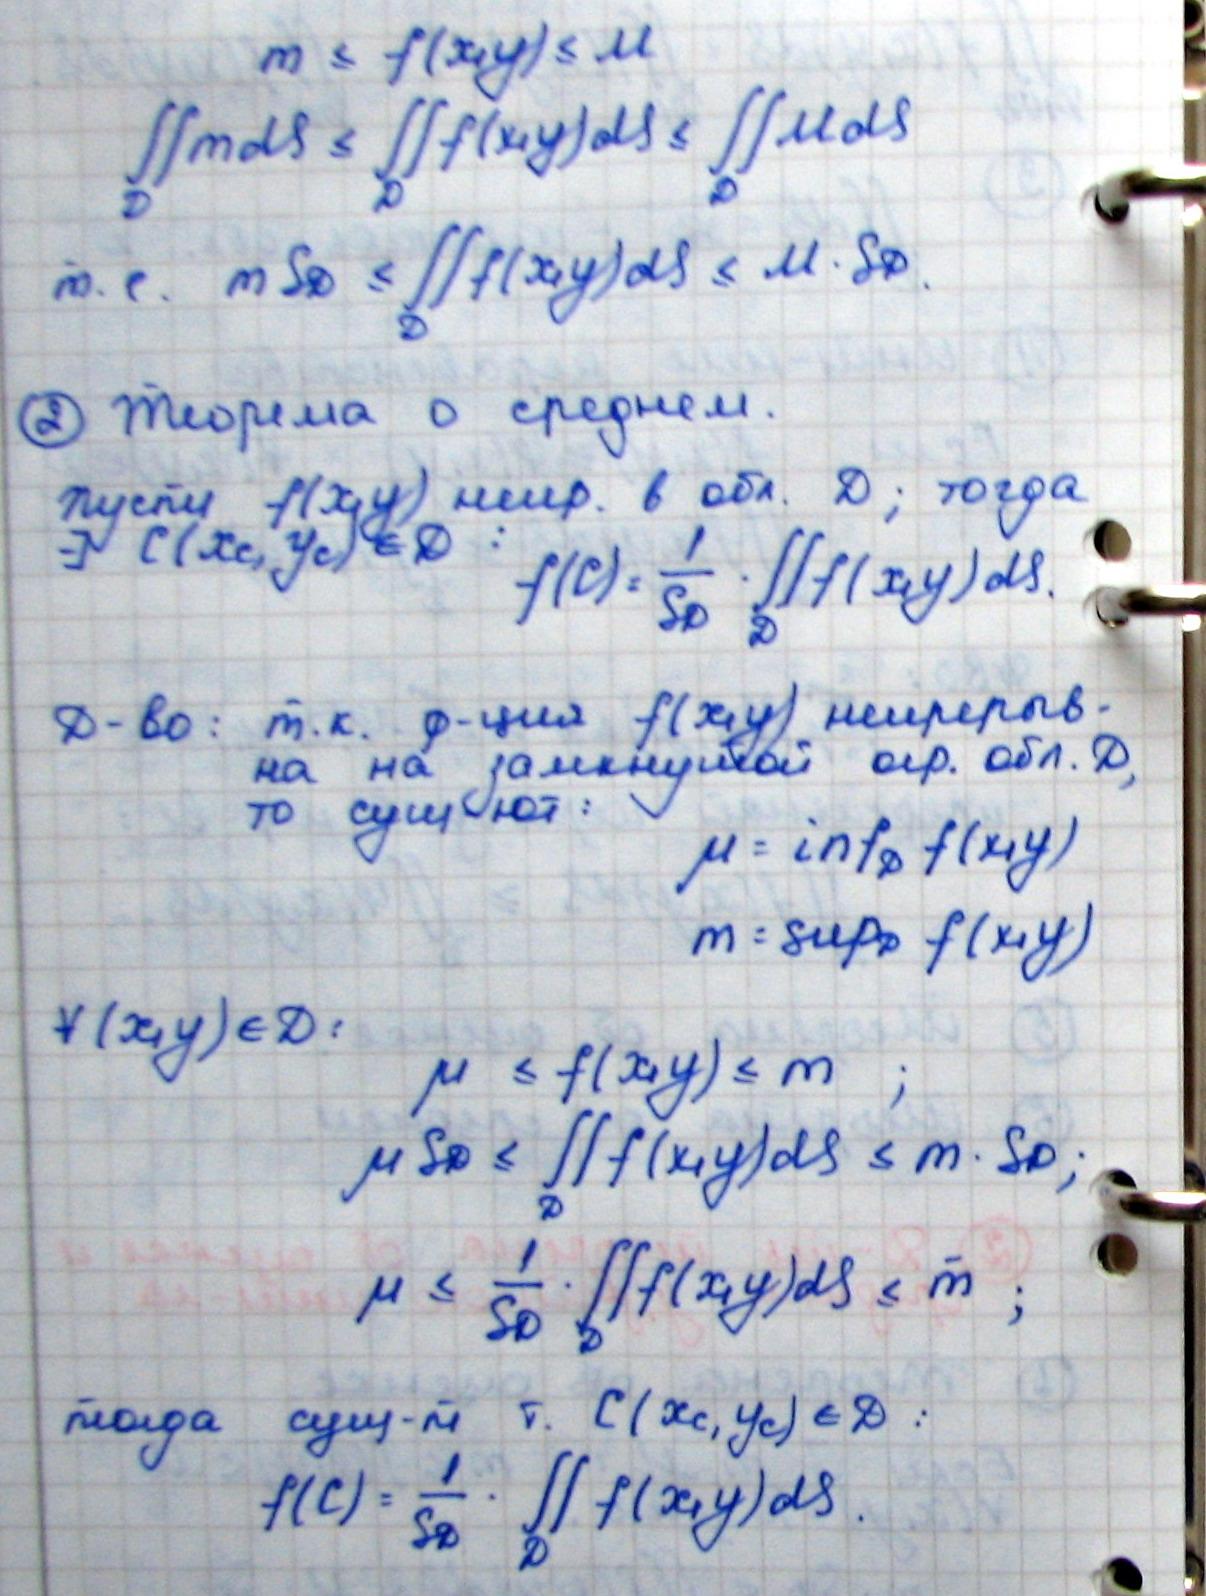 m ≤ f(x,y) ≤ M
∬_D m dS ≤ ∬_D f(x,y) dS ≤ ∬_D M dS
т.е. m S_D ≤ ∬_D f(x,y) dS ≤ M · S_D.
② Теорема о среднем.
Пусть f(x,y) непр. в обл. D; тогда
∃ C(x_c, y_c) ∈ D :
f(C) = 1/S_D · ∬_D f(x,y) dS.
Д-во: т.к. ф-ция f(x,y) непрерыв-
на на замкнутой огр. обл. D,
то сущ-ют:
μ = inf_D f(x,y)
m = sup_D f(x,y)
∀(x,y) ∈ D:
μ ≤ f(x,y) ≤ m ;
μ S_D ≤ ∬_D f(x,y) dS ≤ m · S_D;
μ ≤ 1/S_D · ∬_D f(x,y) dS ≤ m ;
тогда сущ-т т. C(x_c, y_c) ∈ D :
f(C) = 1/S_D · ∬_D f(x,y) dS.